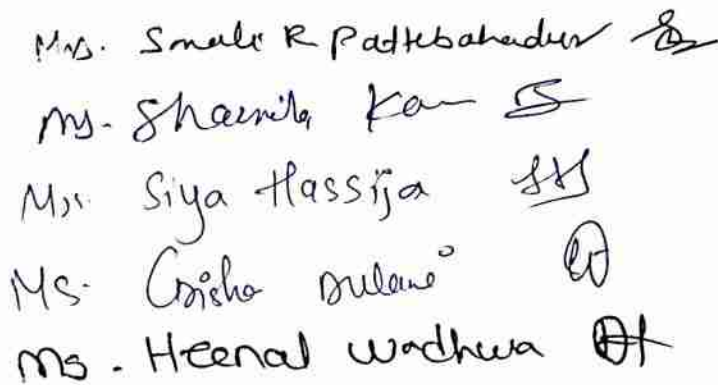 Mrs. Smale R Pattebahadur
Ms. Sharmila
Mrs. Siya Hassija
Ms. Crisha
Ms. Heenal Wadhwa